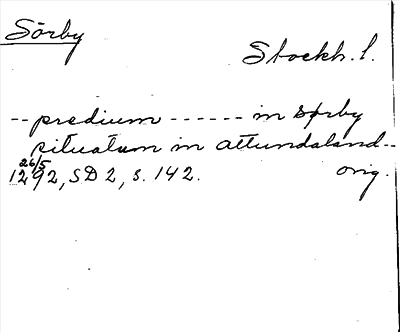 Sörby
Stockh. l.
-- predium ------ in Sørby
situatum in attundaland--
26/5
1292, SD 2, s. 142. orig.